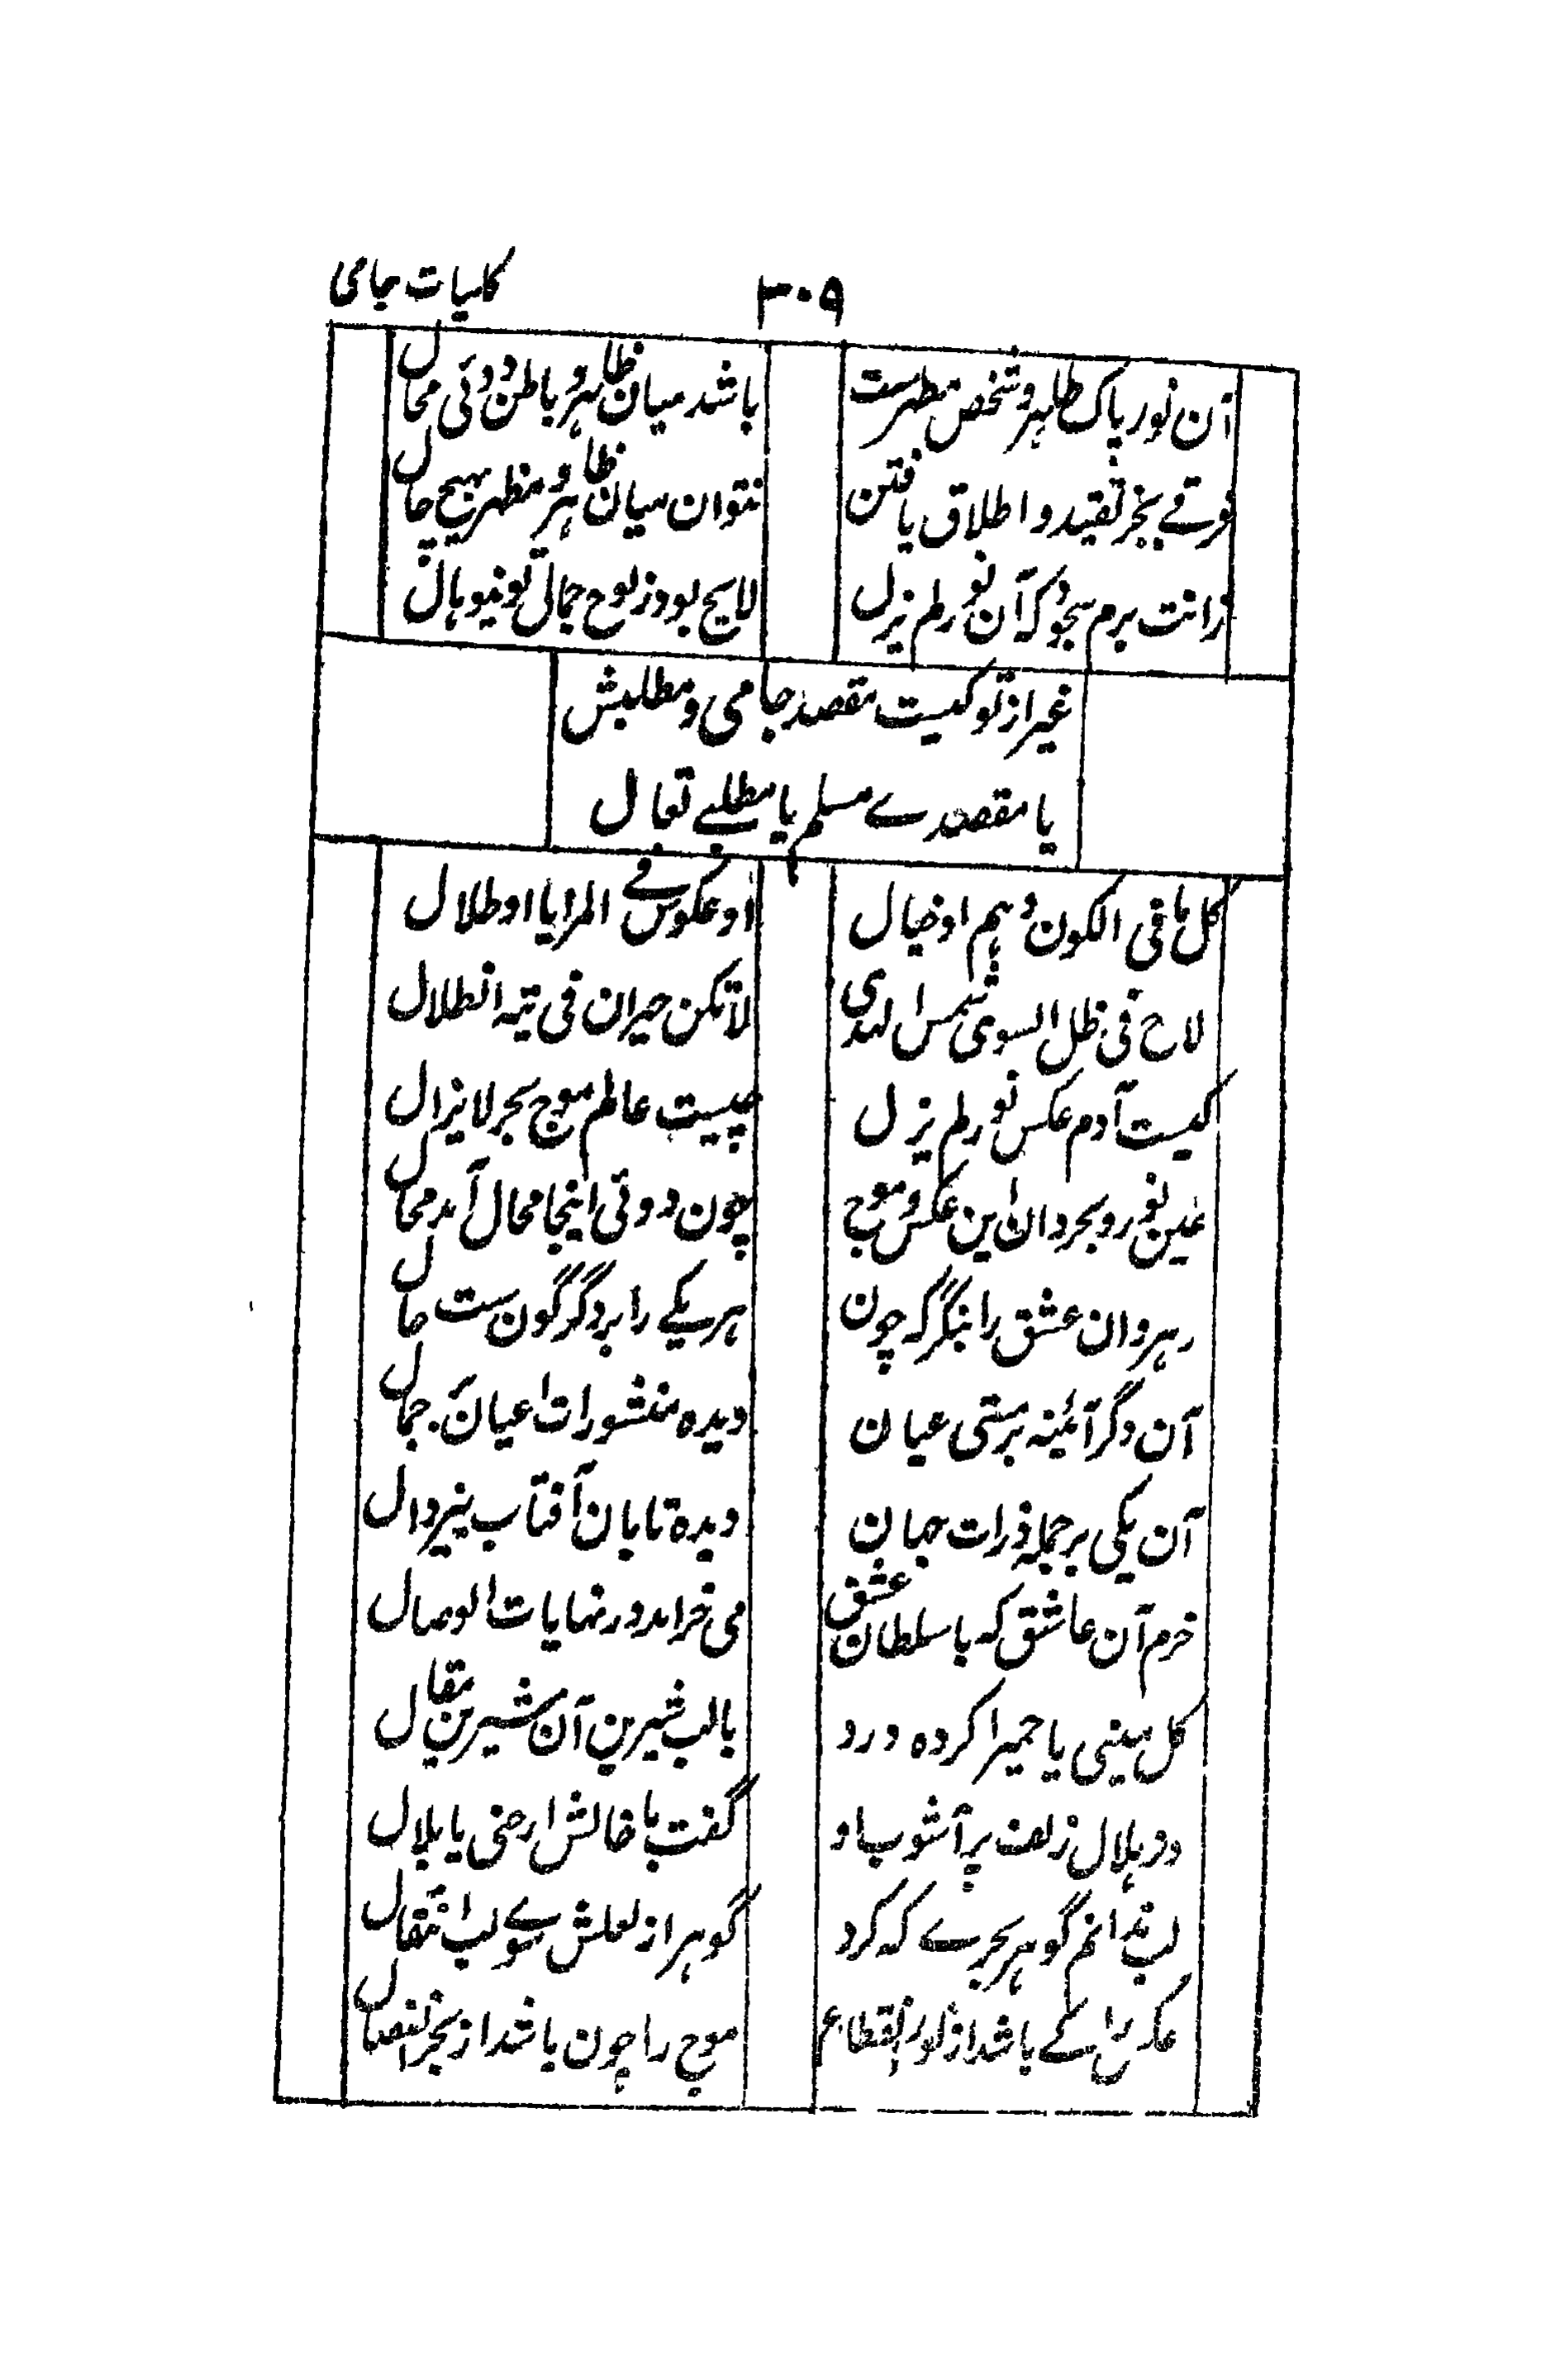 کلیات جامی
۳۰۹
آن نور پاک ظاہر و شخص مظہرست
باشد میان ظاہر و باطن دوئی محال
فرقے بجز تقید و اطلاق یافتن
نتوان میان ظاہر و مظہر بہیچ حال
زانت برم سجود کہ آن نور لم یزل
لایح بود ز لوح جمال تو
غیر از تو کیست مقصد جامی و مطلبش
یا مقصدے مسلم یا مطلبے تعال
کل ما فی الکون وہم او خیال
او عکوس فے المرایا او ظلال
لاح فی ظل السوی شمس الہدی
لاتکن حیران فی تیہ الظلال
کیست آدم عکس نور لم یزل
چیست عالم موج بحر لایزال
عین نور و بحر دان این عکس و موج
چون دوئی اینجا محال آمد محال
رہروان عشق را بنگر کہ چون
ہر یکے را بر دگرگون ست حال
آن دگر آئینہ ہستی عیان
دیدہ منشورات اعیان جمال
آن یکی بر جملہ ذرات جہان
دیدہ تابان آفتاب بیزوال
خرم آن عاشق کہ با سلطان عشق
می خرامد در نہایات الوصال
کل مینی یا حمیرا کردہ درد
بالب شیرین آن شیرین مقال
دو ہلال زلف پر آشوب او
گفت با خالش ارحنی یا بلال
لب ندانم گوہر بحرے کہ کرد
گوہر از لعلش سوے لب انتقال
عکس را کے باشد از نور انقطاع
موج را چون باشد از بحر انفصال